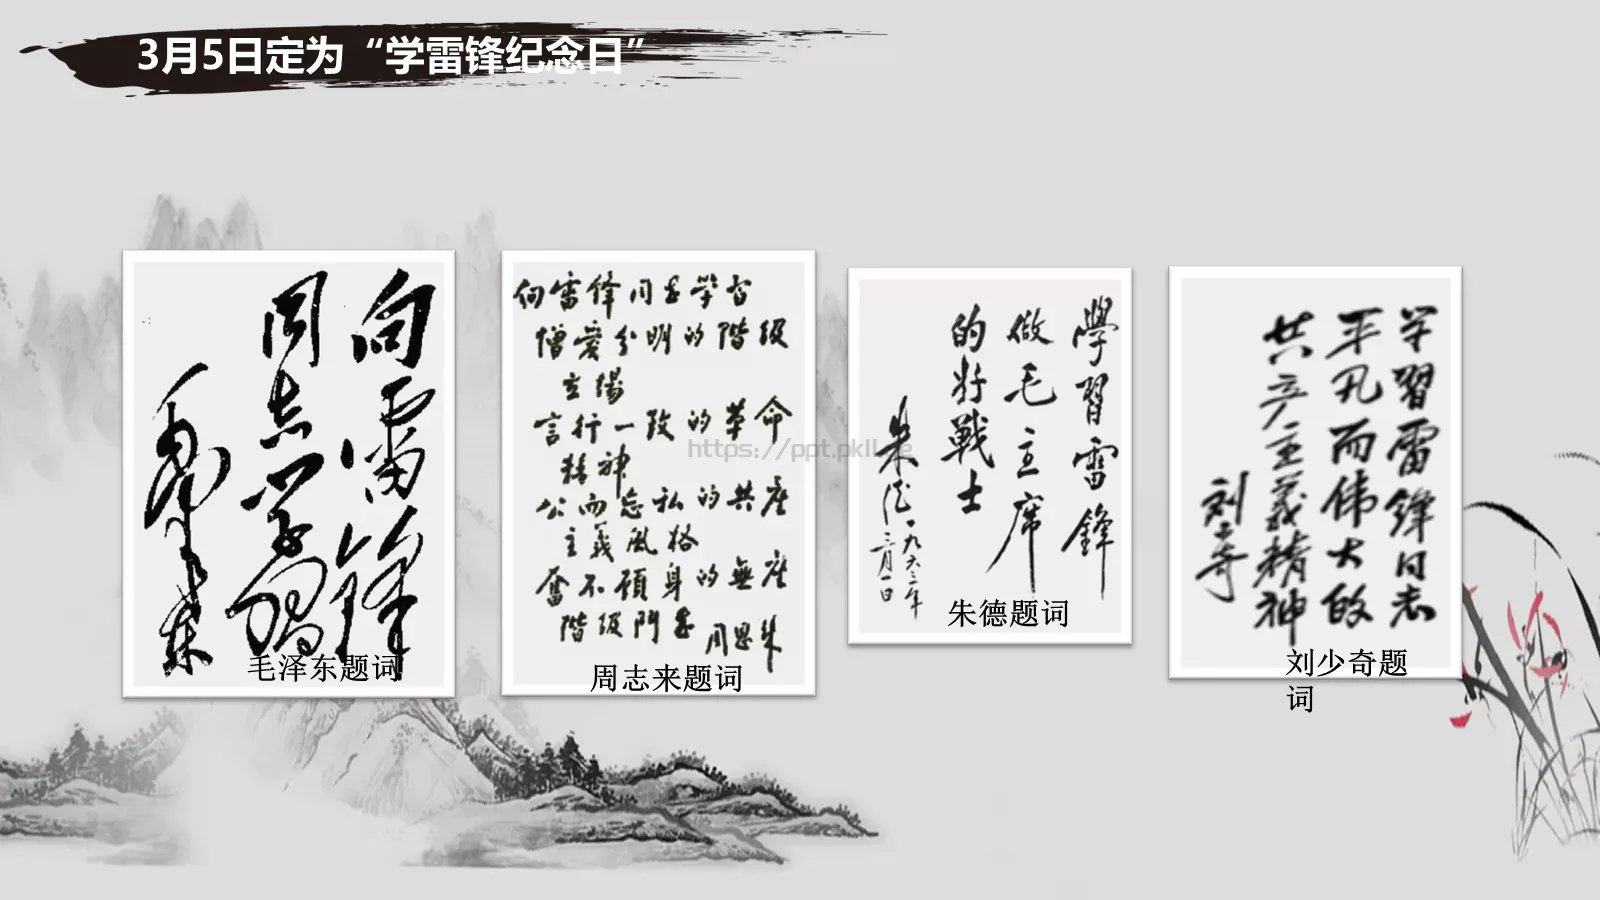 3月5日定为“学雷锋纪念日”
向雷锋
同志学习
毛泽东
毛泽东题词
向雷锋同志学习
憎爱分明的階级
立場
言行一致的革命
精神
公而忘私的共产
主義風格
奮不顧身的無产
階级鬥志
周恩来
周志来题词
學習雷鋒
做毛主席
的好戰士
朱德
一九六三年
三月一日
朱德题词
学習雷锋同志
平凡而伟大的
共产主義精神
刘少奇
刘少奇题
词
https://ppt.pkll.de